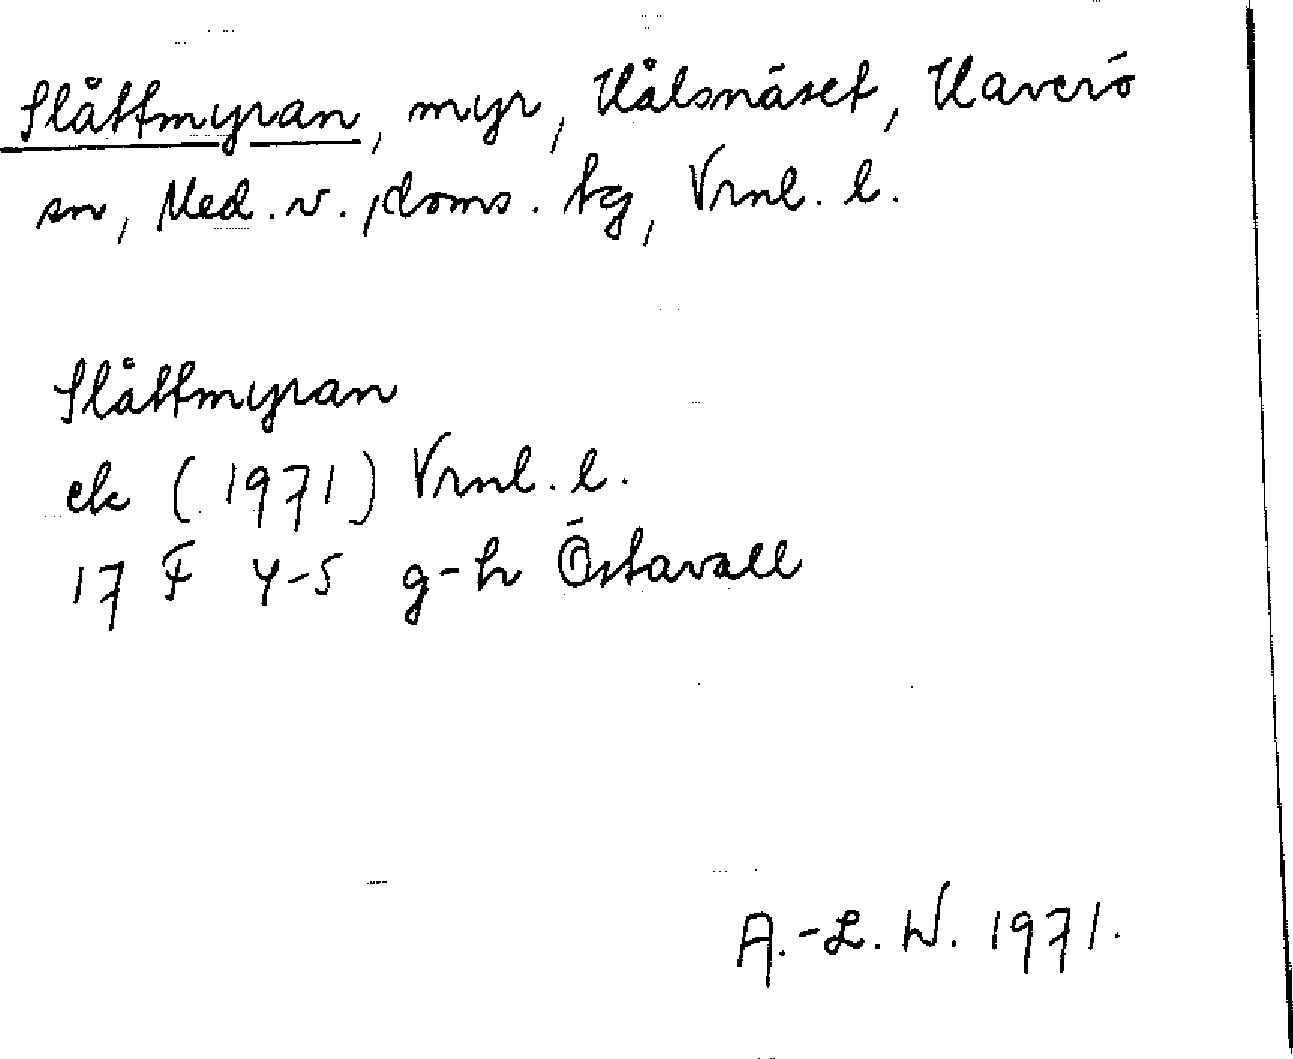 Slåttmyran, myr, Hålsnäset, Haverö
sn, Med. v. doms. tg, Vrnl. l.
Slåttmyran
ek (1971) Vrnl. l.
17 F 4-5 g-h Östavall
A.-L. W. 1971.